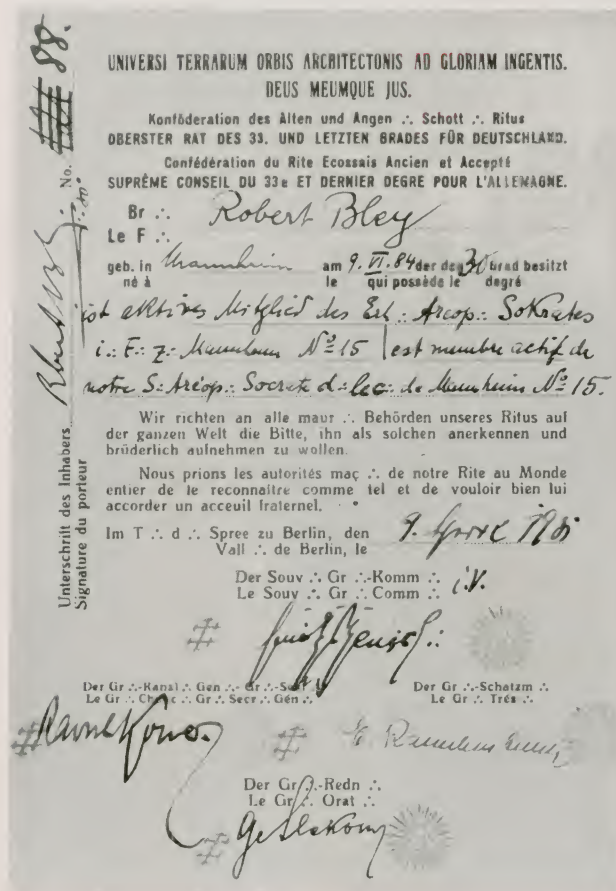 No. 88.
UNIVERSI TERRARUM ORBIS ARCHITECTONIS AD GLORIAM INGENTIS.
DEUS MEUMQUE JUS.
Konföderation des Alten und Angen ∴ Schott ∴ Ritus
OBERSTER RAT DES 33. UND LETZTEN GRADES FÜR DEUTSCHLAND.
Confédération du Rite Ecossais Ancien et Accepté
SUPRÊME CONSEIL DU 33e ET DERNIER DEGRE POUR L'ALLEMAGNE.
Br ∴ Robert Bley
Le F ∴
geb. in Mannheim am 9. VI. 84 der den 30 Grad besitzt
né à le qui possède le degré
ist aktives Mitglied des Erl ∴ Areop ∴ Sokrates
i ∴ E ∴ z ∴ Mannheim No 15 | est membre actif de
notre S ∴ Aréop ∴ Socrate d ∴ lec ∴ de Mannheim No 15.
Wir richten an alle maur ∴ Behörden unseres Ritus auf
der ganzen Welt die Bitte, ihn als solchen anerkennen und
brüderlich aufnehmen zu wollen.
Nous prions les autorités maç ∴ de notre Rite au Monde
entier de le reconnaître comme tel et de vouloir bien lui
accorder un acceuil fraternel.
Im T ∴ d ∴ Spree zu Berlin, den 9.
Vall ∴ de Berlin, le
Der Souv ∴ Gr ∴-Komm ∴ i.V.
Le Souv ∴ Gr ∴ Comm ∴
Der Gr ∴-Kanzl ∴ Gen ∴- Gr ∴-Sekr ∴
Le Gr ∴ Chanc ∴ Gr ∴ Secr ∴ Gén ∴
Der Gr ∴-Schatzm ∴
Le Gr ∴ Trés ∴
Der Gr ∴-Redn ∴
Le Gr ∴ Orat ∴
Unterschrift des Inhabers
Signature du porteur